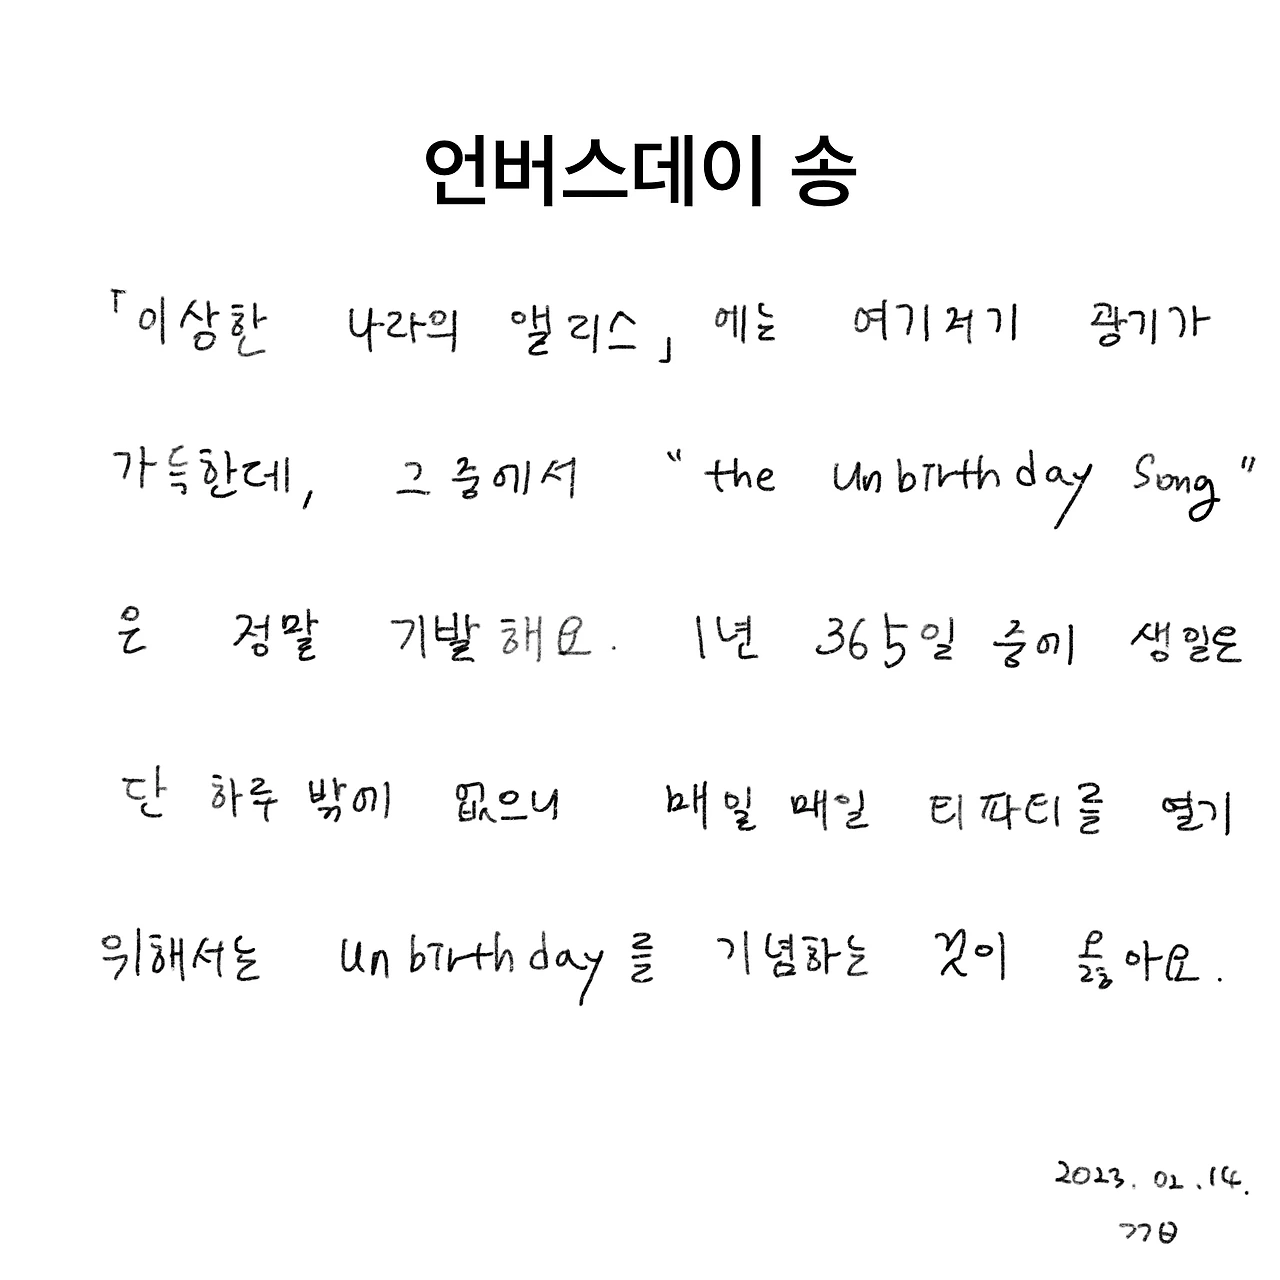 언버스데이 송
「이상한 나라의 앨리스」에는 여기저기 광기가
가득한데, 그 중에서 “the unbirthday song”
은 정말 기발해요. 1년 365일 중에 생일은
단 하루 밖에 없으니 매일매일 티파티를 열기
위해서는 unbirthday를 기념하는 것이 옳아요.
2023. 02. 14.